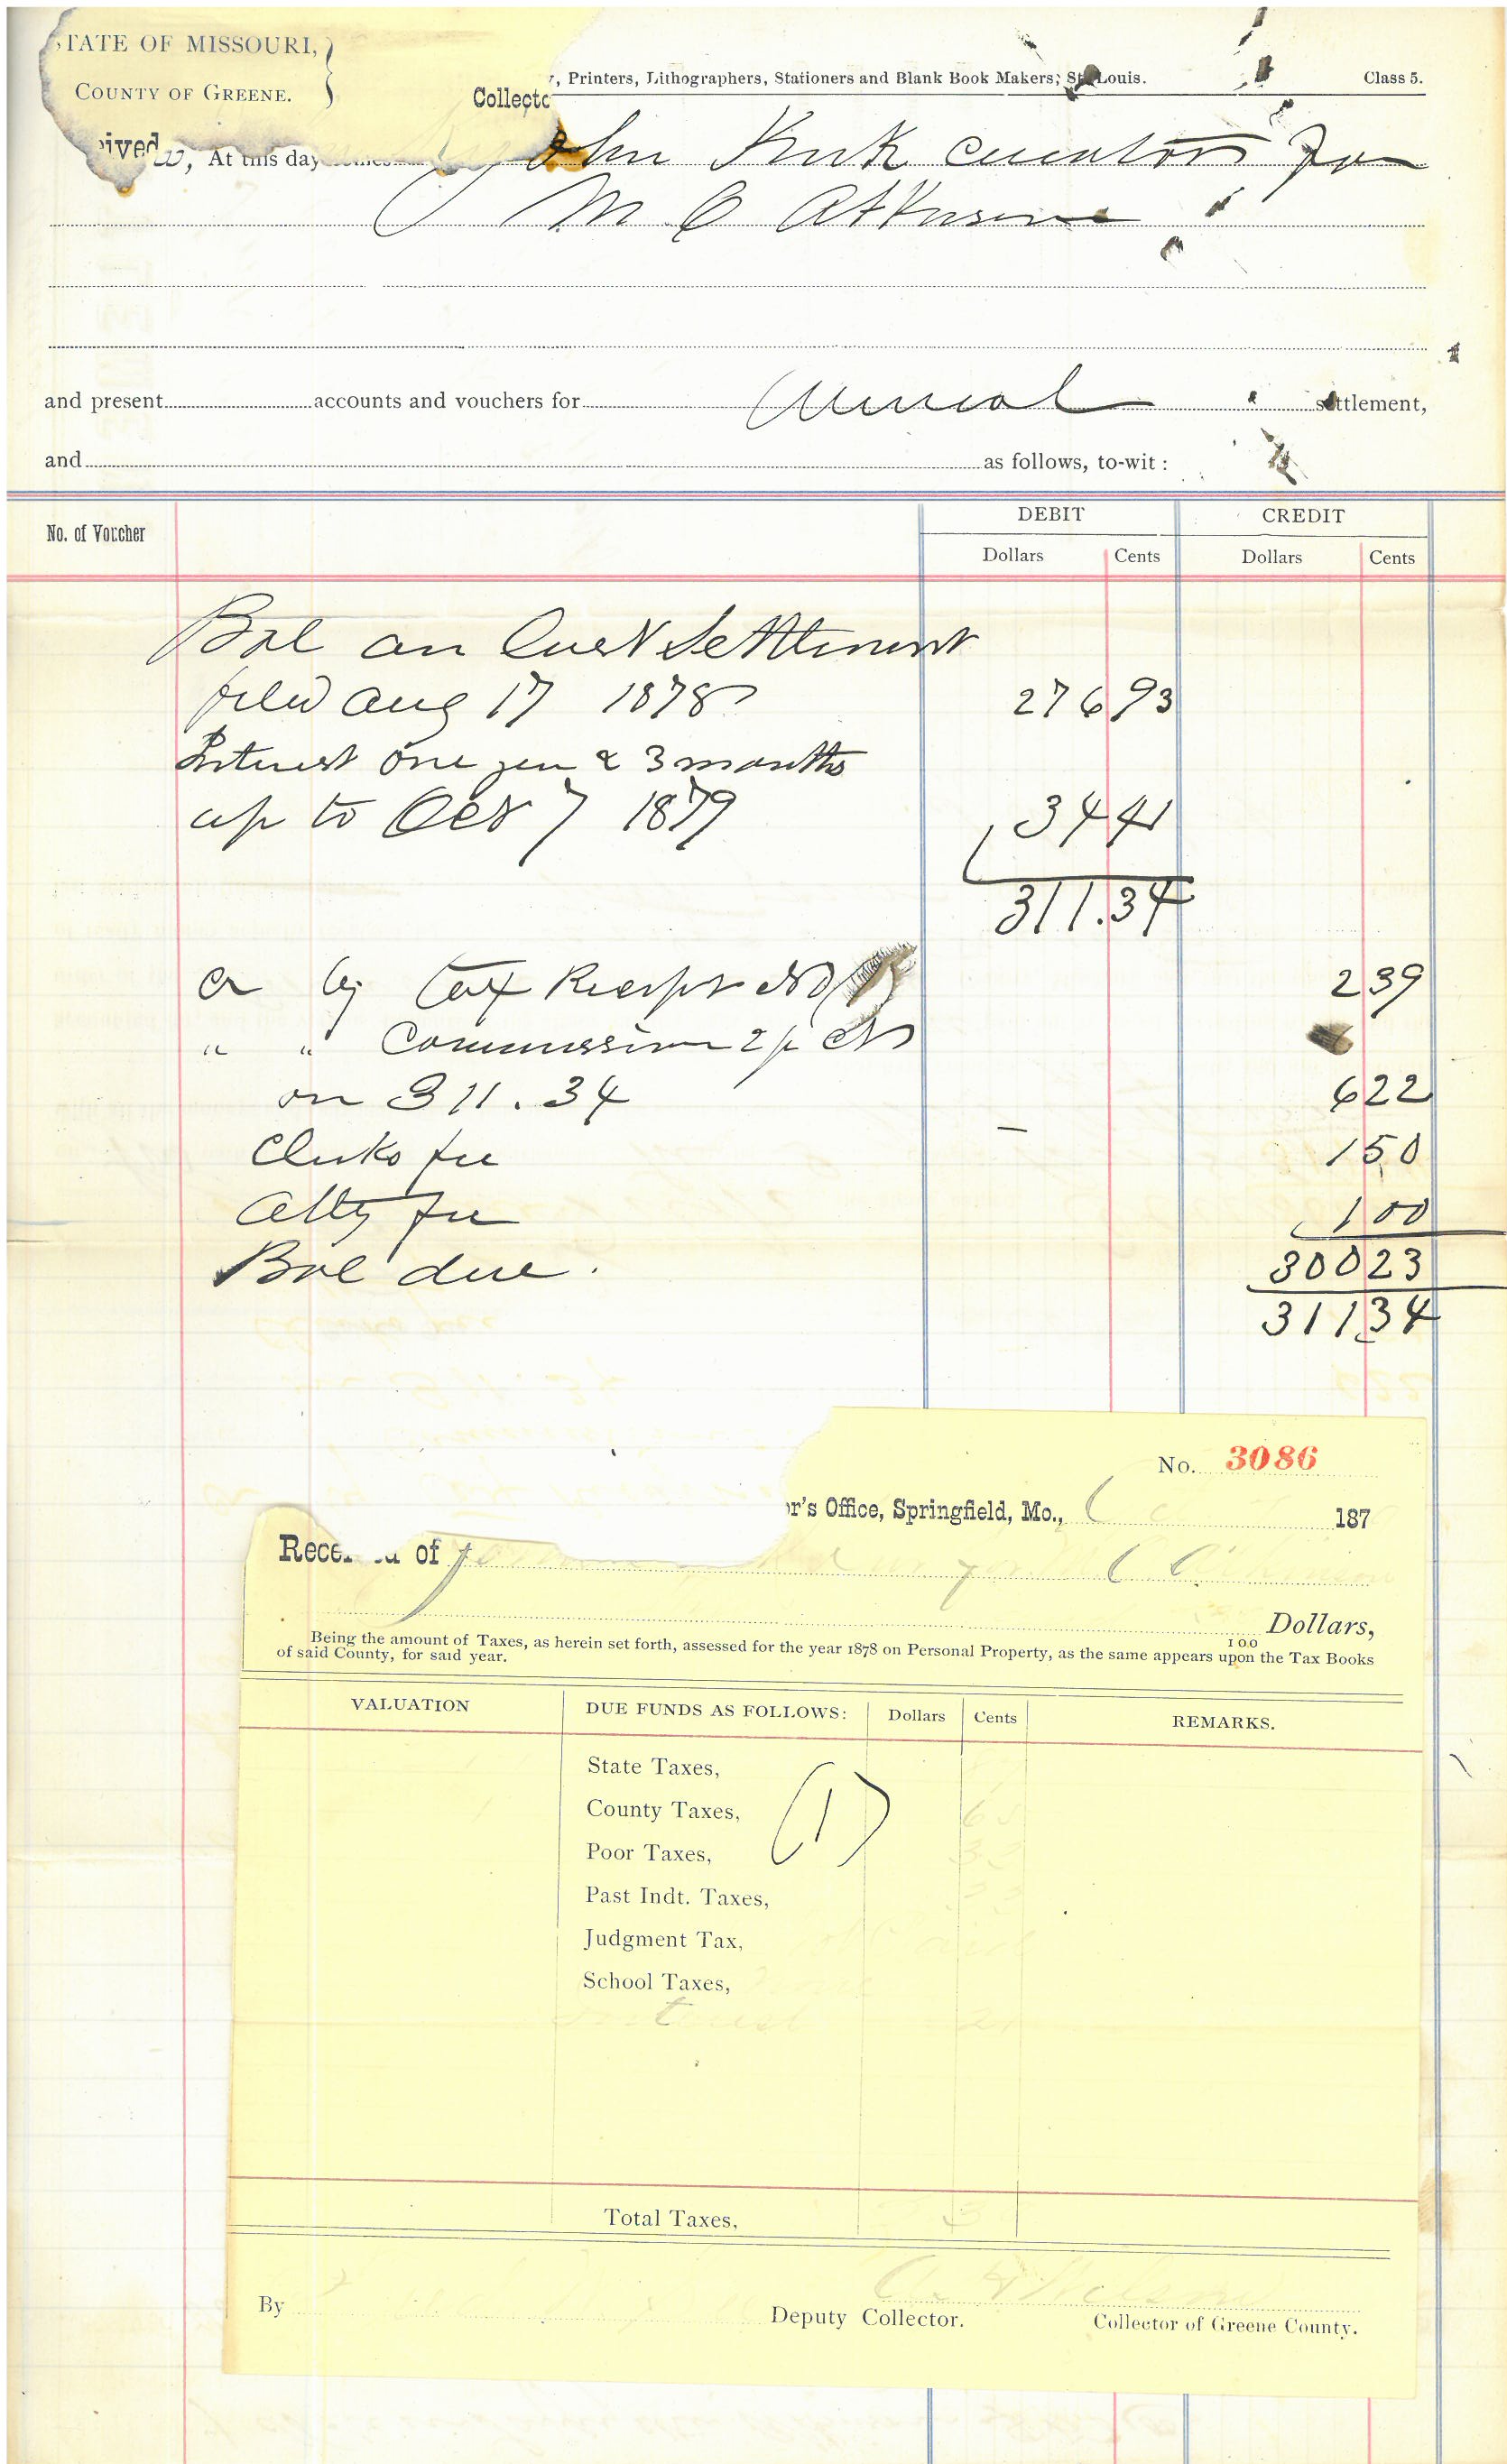 STATE OF MISSOURI,
COUNTY OF GREENE.
Printers, Lithographers, Stationers and Blank Book Makers, St. Louis. Class 5.
Collecto
ived
At this day John Kirk curator for
M C Atkinson
and present accounts and vouchers for Annual settlement,
and as follows, to-wit:
No. of Voucher DEBIT CREDIT
Dollars Cents Dollars Cents
Bal on last Settlement
filed Aug 17 1878 276 93
Interest one year & 3 months
up to Oct 7 1879 34 41
311.34
Cr by Tax Receipt No 1 2 39
" " Commission 2 p ct
on 311.34 6 22
Clerks fee 1 50
Atty fee 1 00
Bal due. 300 23
311 34
No. 3086
r's Office, Springfield, Mo., 187
Received of
C Atkinson
Dollars,
100
Being the amount of Taxes, as herein set forth, assessed for the year 1878 on Personal Property, as the same appears upon the Tax Books
of said County, for said year.
VALUATION DUE FUNDS AS FOLLOWS: Dollars Cents REMARKS.
State Taxes,
County Taxes, (1)
Poor Taxes,
Past Indt. Taxes,
Judgment Tax,
School Taxes,
Interest
Total Taxes,
By Deputy Collector. Collector of Greene County.